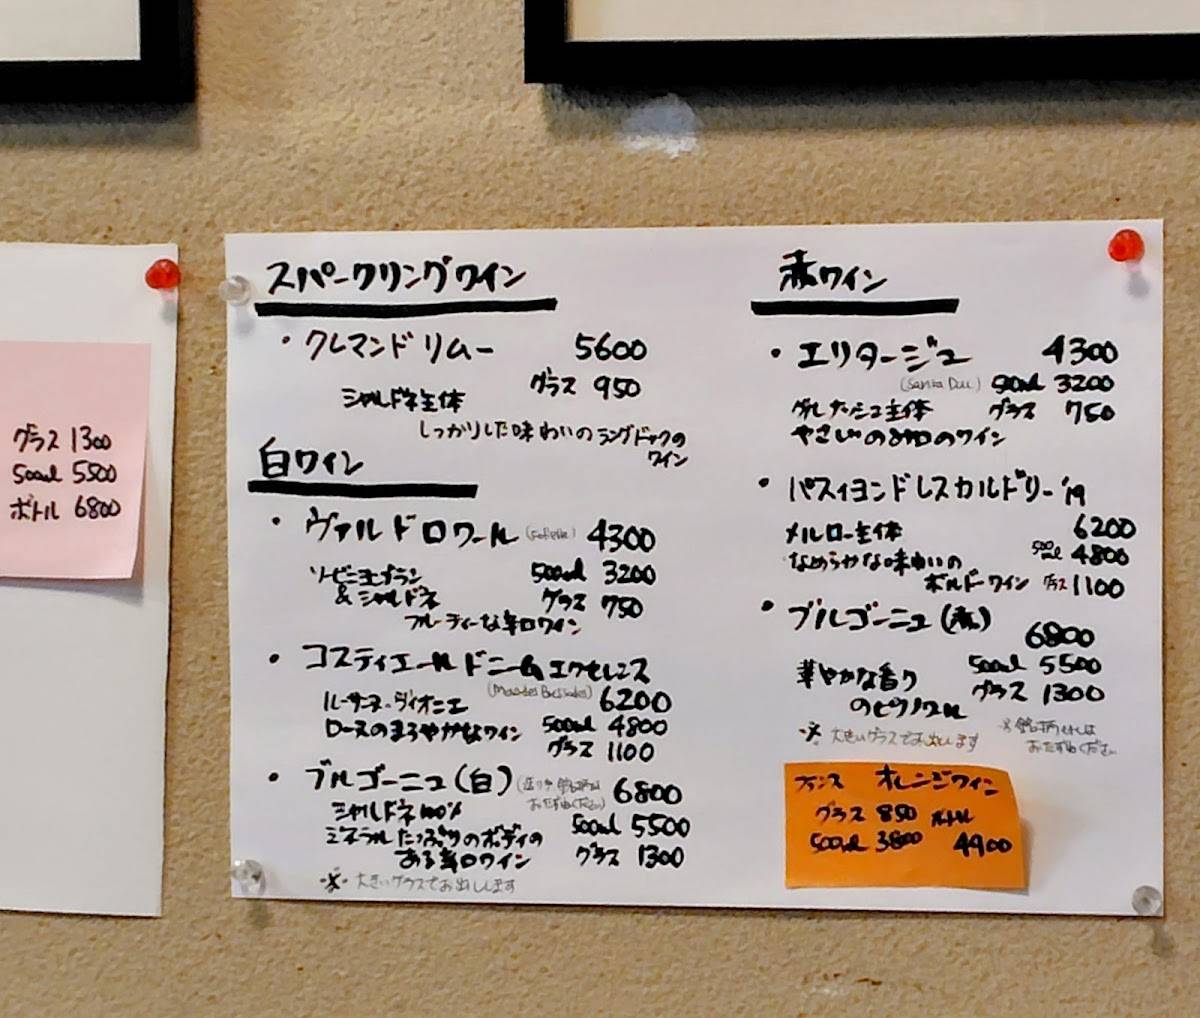 グラス 1300
500ml 5500
ボトル 6800
スパークリングワイン
・クレマンド リムー 5600
グラス 950
シャルドネ主体
しっかりした味わいのラングドックの
ワイン
白ワイン
・ヴァルドロワール 4300
ソービニヨンブラン 500ml 3200
&シャルドネ グラス 750
フルーティーな辛口ワイン
・コスティエールドニームエクセレンス
6200
ルーサンヌ・ヴィオニエ
ローヌのまろやかなワイン 500ml 4800
グラス 1100
・ブルゴーニュ(白) 6800
シャルドネ100%
おたずねください)
ミネラルたっぷりのボディの 500ml 5500
ある辛口ワイン グラス 1300
※大きいグラスでお出しします
赤ワイン
・エリタージュ 4300
(Santa Duc) 500ml 3200
グルナッシュ主体 グラス 750
やさしいのみ口のワイン
・パスィヨンドレスカルドリー'19
メルロー主体 6200
なめらかな味わいの 500ml 4800
ボルドーワイン グラス 1100
・ブルゴーニュ(赤) 6800
華やかな香り 500ml 5500
のピノノワール グラス 1300
※大きいグラスでお出します
※銘柄は
おたずねください
フランス オレンジワイン
グラス 850 ボトル
500ml 3800 4900